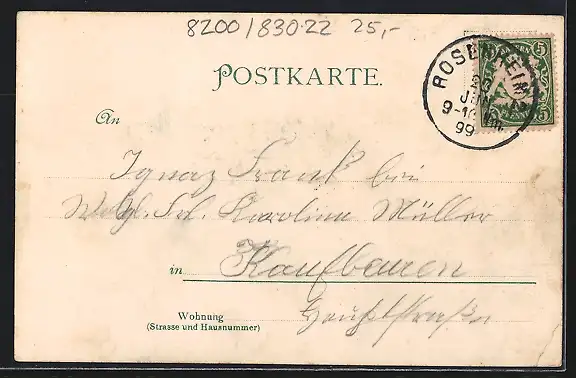 8200/830.22 25,-
POSTKARTE.
ROSENHEIM
JUN
9-10 Vm.
99
5 5
PFENNIG
5
An
Ignaz Frank bei
Wohlg. Frl. Karolina Müller
in Kaufbeuren
Wohnung
(Strasse und Hausnummer)
Hauptstraße